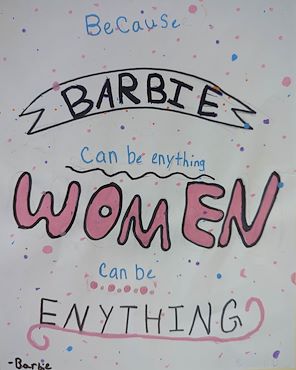 Because
BARBIE
Can be enything
WOMEN
can be
ENYTHING
-Barbie